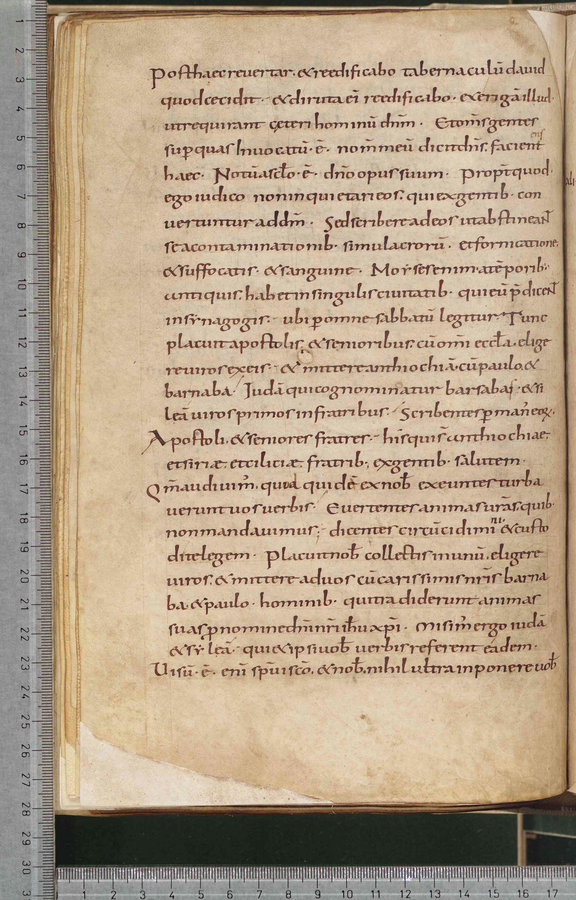 Posthaec revertar · & reedificabo tabernaculū david
quod cecidit · & diruta ei reedificabo · & erigā illud ·
ut requirant ceteri hominū dnm̄ · Et om̄s gentes
sup quas Invocatū · ē · nom̄ meū dicit dn̄s · facient
haec · Notū a sclo · ē · dn̄o opus suum · Propt quod ·
ego iudico non inquietari eos · qui ex gentib · con
vertuntur ad dm̄ · Sed scribere ad eos ut abstineant
se a contaminationib · simulacrorū · et fornicatione ·
& suffocatis · & sanguine · Moyses enim a teporib ·
antiquis · habet in singulis civitatib · qui eū p̄dicent
in synagogis · ubi p omne sabbatū legitur · Tunc
placuit apostolis · & senioribus · cū omi eccla · elige
re viros ex eis · & mittere anthiochiā · cū paulo · &
barnaba · Iudā qui cognominatur barsabas · & si
leā viros primos in fratribus · Scribentes p man eo ·
Apostoli · & seniores fratres · his qui s anthiochiae ·
et siriæ · et ciliciæ · fratrib · ex gentib · salutem ·
Qm̄ audivim · quia quidē ex nob exeuntes turba
verunt vos verbis · Evertentes animas uras · quib ·
non mandavimus · dicentes circūcidimini · & custo
dite legem · Placuit nob collectis in unū · eligere
viros · & mittere ad vos cū carissimis nris barna
ba · & paulo · hominib · qui tradiderunt animas
suas p nomine dni nri ihu xpi · Misim ergo iudā
& syleā · qui & ipsi vob verbis referent eadem ·
Visū · ē · eni spui sco · & nob · nihil ultra inponere vob